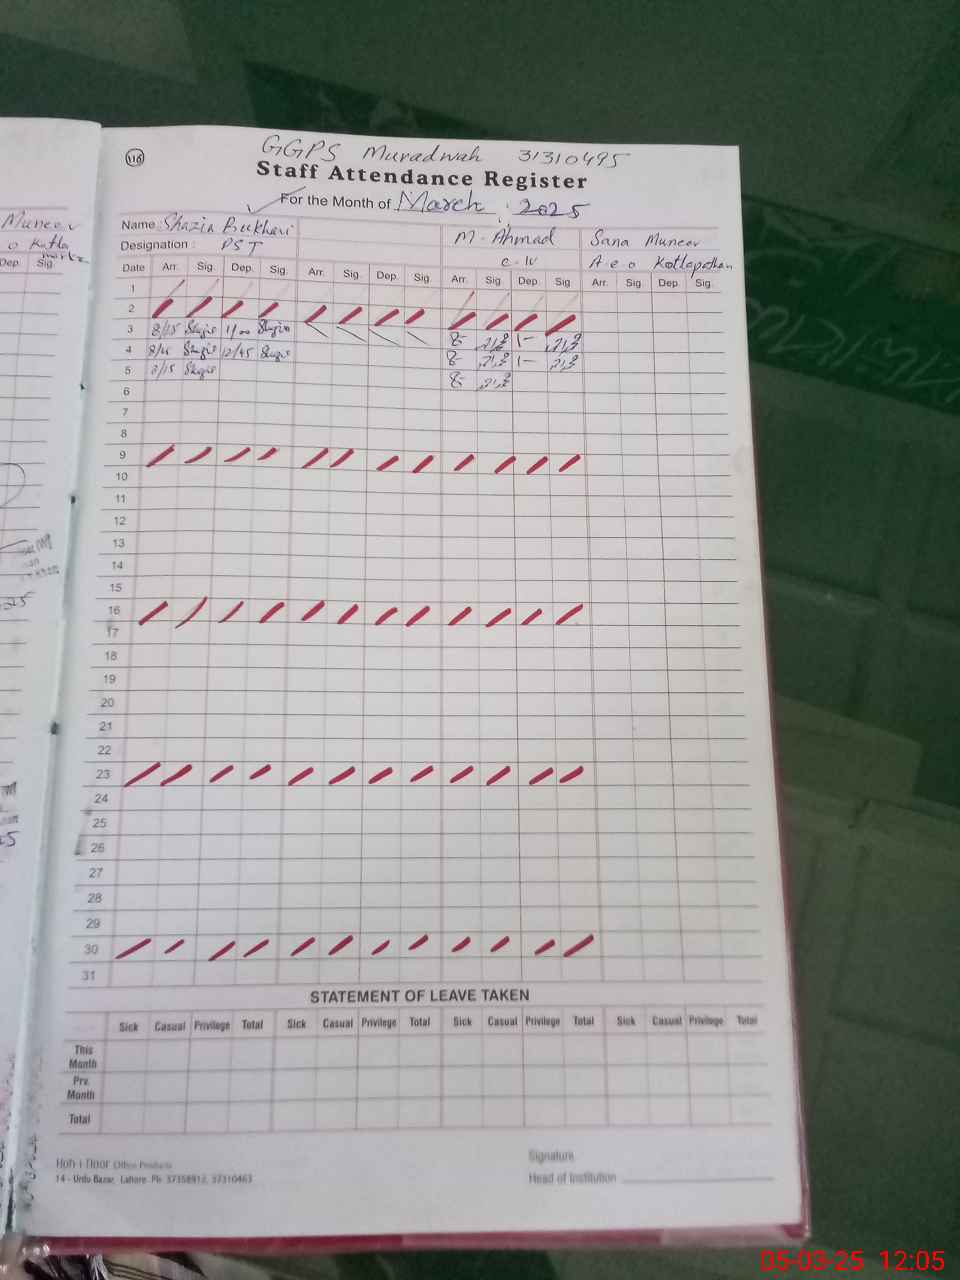 Muneer
o Kotla
Dep. Sig.
116
GGPS Muradwah 31310495
Staff Attendance Register
For the Month of March 2025
Name Shazia Bukhari M. Ahmad Sana Muneer
Designation : PST C-IV A e o Kotlapathan
Date Arr. Sig. Dep. Sig. Arr. Sig. Dep. Sig. Arr. Sig Dep. Sig Arr. Sig. Dep. Sig.
1
2
3 8/15 Shazia 1/00 Shazia 8- 1-
4 8/15 Shazia 12/45 Shazia 8- 1-
5 8/15 Shazia 8-
6
7
8
9
10
11
12
13
14
15
16
17
18
19
20
21
22
23
24
25
26
27
28
29
30
31
STATEMENT OF LEAVE TAKEN
Sick Casual Privilege Total Sick Casual Privilege Total Sick Casual Privilege Total Sick Casual Privilege Total
This Month
Prv. Month
Total
Signature
Head of Institution
Office Products
14 - Urdu Bazar, Lahore. Ph: 37358912, 37310463
05-03-25 12:05